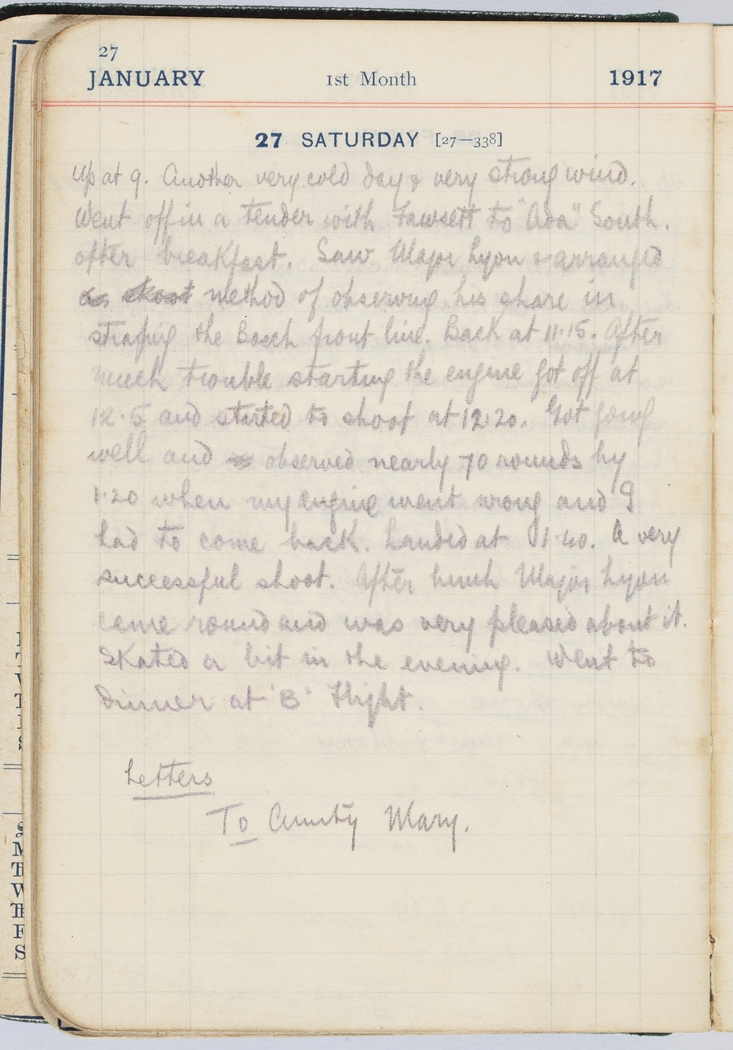 27
JANUARY 1st Month 1917
27 SATURDAY [27—338]
Up at 9. Another very cold day & very strong wind.
Went off in a tender with Fawsett to "Ada" South.
after breakfast. Saw Major Lyon & arranged
shoot method of observing his share in
strafing the Bosch front line. Back at 11.15. After
much trouble starting the engine got off at
12.5 and started to shoot at 12.20. Got going
well and observed nearly 70 rounds by
1.20 when my engine went wrong and I
had to come back. Landed at 1.40. A very
successful shoot. After lunch Major Lyon
came round and was very pleased about it.
Skated a bit in the evening. Went to
Dinner at 'B' Flight.
Letters
To Aunty Mary.
S
M
T
W
Th
F
S